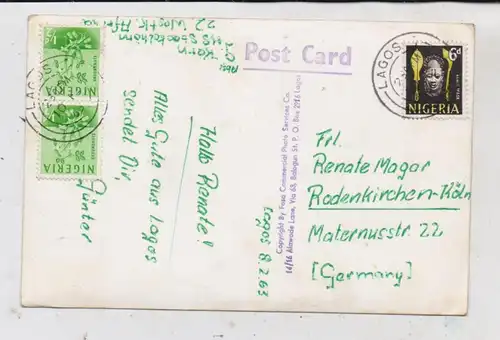 Post Card
Lagos 8.2.63
Hallo Renate!
Alles Gute aus Lagos
sendet Dir
Günter
Copyright By Foes Commercial Photo Services Co.
14/16 Alawode Lane, Via 63, Balogun St. P. O. Box 2116 Lagos
LAGOS
6d
NIGERIA
LAGOS
NIGERIA
NIGERIA
Frl.
Renate Magar
Rodenkirchen-Köln
Maternusstr. 22
[Germany]